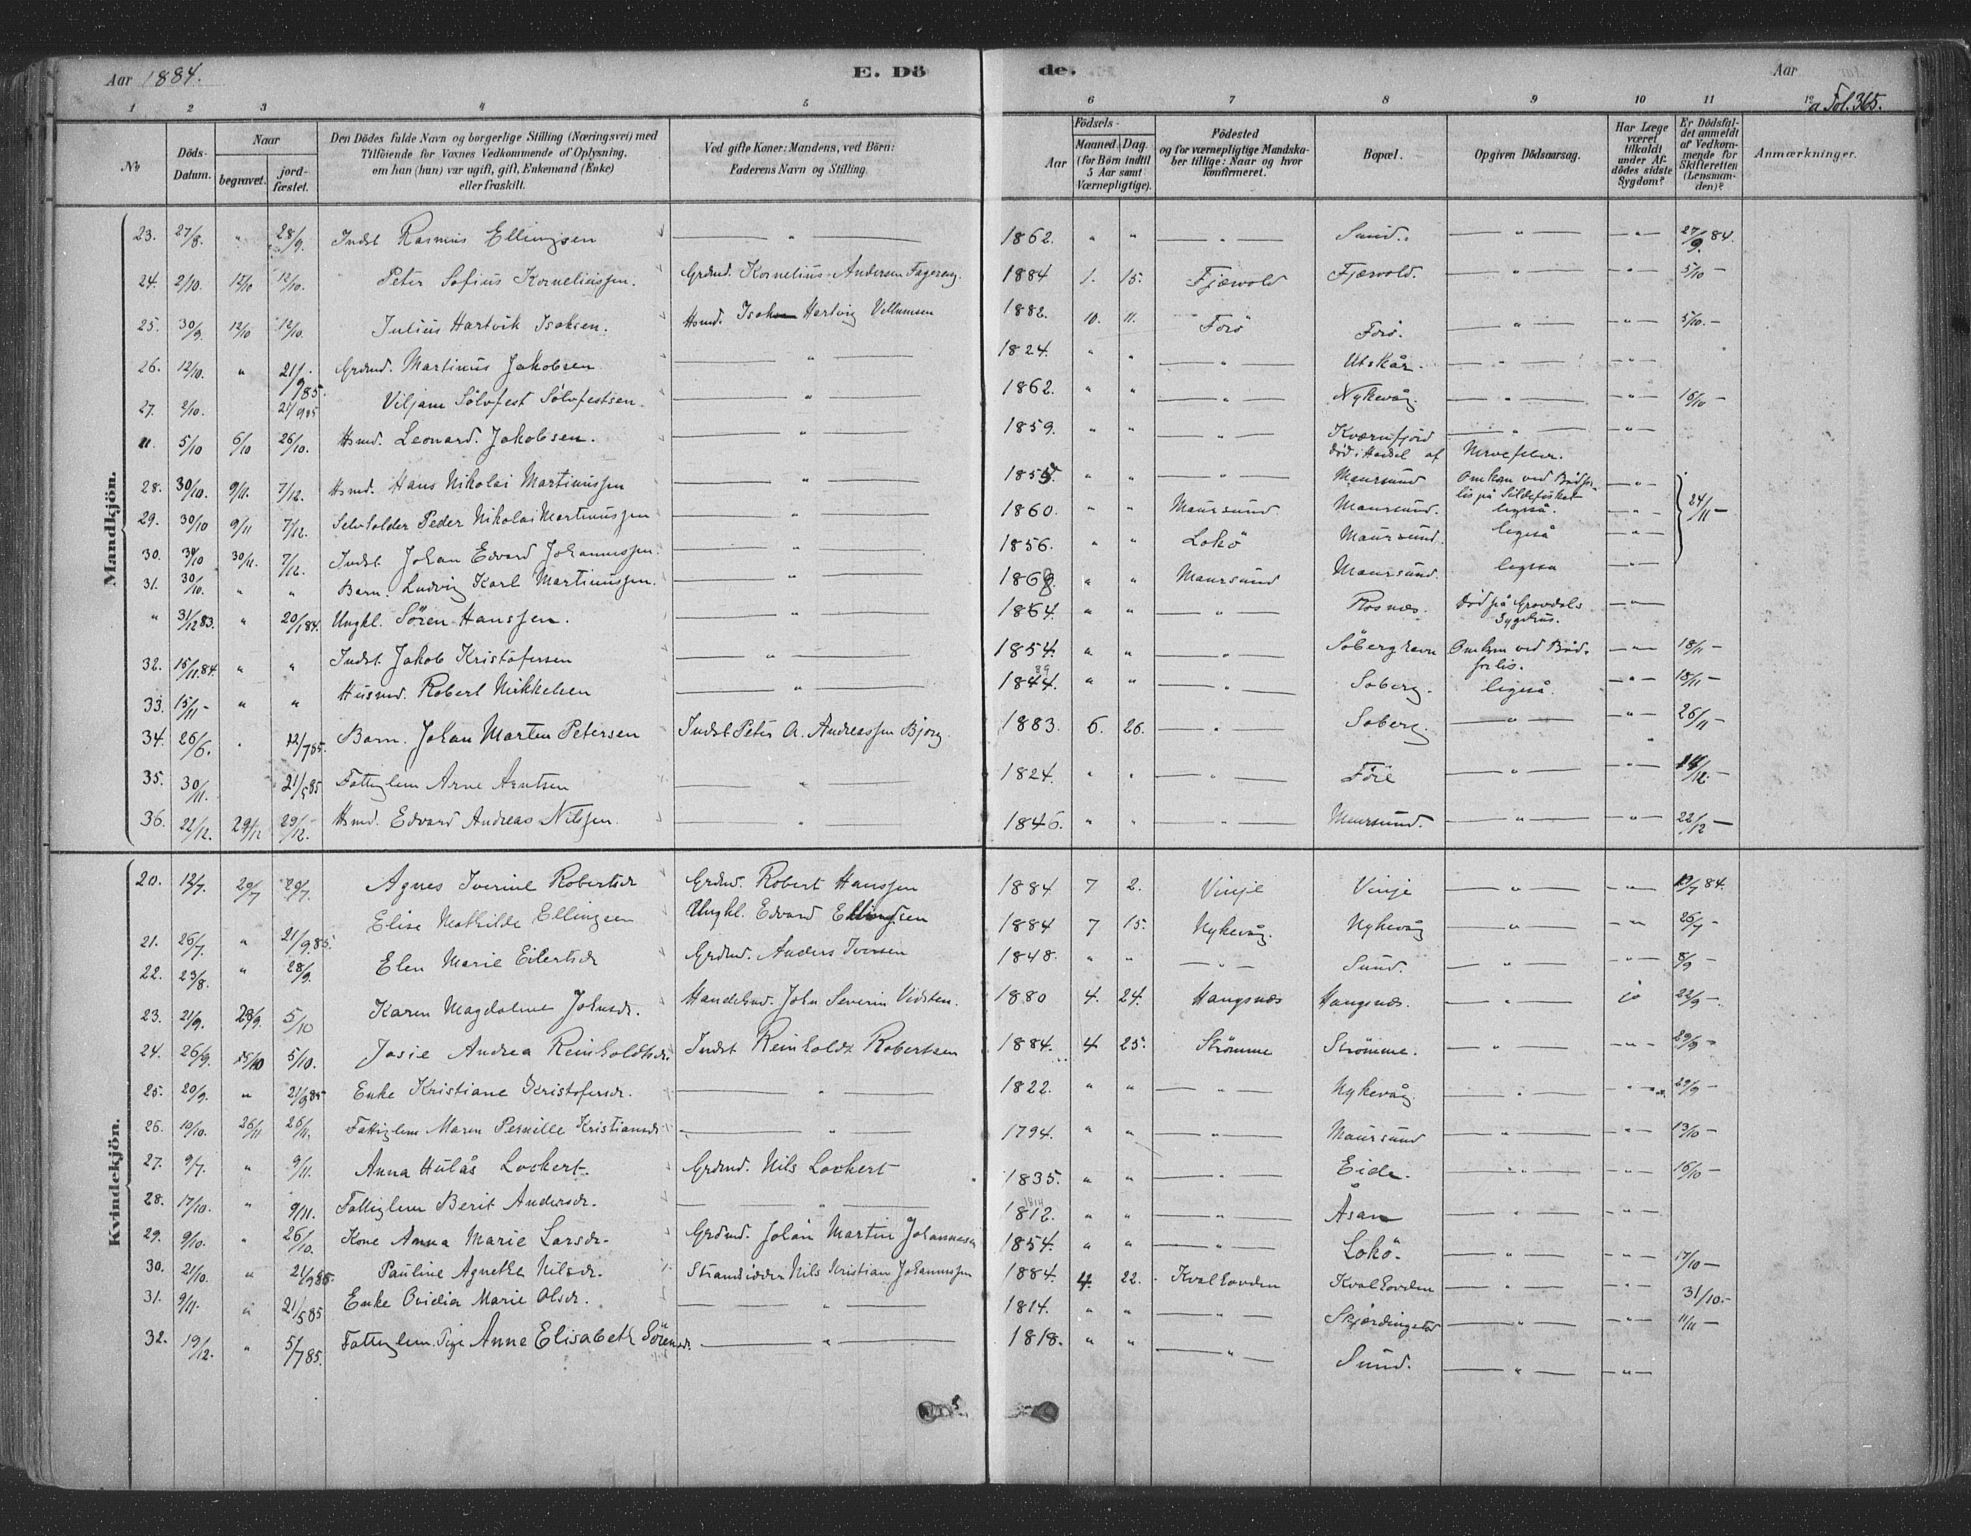 Aar 1884. E. Döde. Aar
a Fol. 365.
1 2 3 4 5 6 7 8 9 10 11 12
No Döds-Datum. Naar begravet. jordfæstet. Den Dödes fulde Navn og borgerlige Stilling (Næringsvei) med Tilföiende for Voxnes Vedkommende af Oplysning, om han (hun) var ugift, gift, Enkemand (Enke) eller fraskilt. Ved gifte Koner: Mandens, ved Börn: Faderens Navn og Stilling. Födsels- Aar Maaned. Dag. (for Børn indtil 5 Aar samt Værnepligtige). Födested og for værnepligtige Mandskaber tillige: Naar og hvor konfirmeret. Bopæl. Opgiven Dödsaarsag. Har Læge været tilkaldt under Afdödes sidste Sygdom? Er Dödsfaldet anmeldt af Vedkommende for Skifteretten (Lensmanden)? Anmærkninger.
Mandkjön.
23. 27/8. " 28/9. Indst Rasmus Ellingsen " 1862. " " " Sund. " " 27/9 84.
24. 2/10. 12/10 12/10. Peter Sofius Korneliussen. Grdmd. Kornelius Andersen Fagereng. 1884 1. 15. Fjærvold Fjærvold. " " 5/10 –
25. 30/9. 12/10 12/10. Julius Hartvik Isaksen. Hsmd. Isak Hartvig Vellumsen 1882. 10. 11. Forö Forö. " " 5/10. –
26. 12/10. " 21/9 85. Grdmd. Martinus Jakobsen " 1824. " " " Utskår. " "
27. 2/10. 21/9 85 Viljam Sölvfest Sölvfestsen. " 1862. " " " Nykevåg. " " 16/10 –
11. 5/10 6/10 26/10. Hsmd. Leonard. Jakobsen. " 1859. " " Kværnfjord död i Hadsel af Nervefeber. "
28. 30/10. 9/11. 7/12. Hsmd. Hans Nikolai Martinussen " 1855 " " " Maursund Omkom ved Bådforlis på Sildefiskeri "
29. 30/10 9/11 7/12. Selvholder Peder Nikolai Martinussen " 1860. " " Maursund. Maursund. ligeså. " 24/11 –
30. 30/10 30/11. 7/12. Indst. Johan Edvard Johannessen. " 1856. " " Lokö Maursund. ligeså "
31. 30/10. " " Barn Ludvig Karl Martinussen. " 1869. " " Maursund Maursund. ligesaa "
" 31/12 83. " 20/1 84. Ungkl. Sören Hanssen. " 1864. " " " Rosnæs. Död på Gravdals Sygehus. "
32. 15/11. 84. " " Indst. Jakob Kristofersen " 1854. " " " Söberg Omkom ved Bådforlis. " 18/11 –
33. 15/11 – " " Husmd. Robert Mikkelsen " 1844. 39 " " " Soberg. ligeså. " 18/11 –
34. 26/6. " 12/7 85. Barn. Johan Marten Petersen Indst Peter A. Andreassen Bjorg. 1883 6. 26. " Soberg " " 26/11 –
35. 30/11. 21/5 85 Fattiglem Arne Arntsen " 1824. " " " Före " " 14/12. –
36. 22/12. 29/12 29/12. Hsmd. Edvard Andreas Nilssen. " 1846. " " Maursund. " " 22/12 –
Kvindekjön.
20. 12/7. 29/7 29/7. Agnes Iverine Robertsdr Grdmd. Robert Hanssen 1884 7 2. Vinje Vinje " " 19/7 84.
21. 26/7. " 21/9. 85. Elise Mathilde Ellingsen Ungkl. Edvard Ellingsen 1884 7 15. Nykevåg. Nykevåg " " 26/7 –
22. 23/8. " 28/9. Elen Marie Eilertsdr Grdmd. Anders Iversen 1848. " " " Sund. " " 8/9 –
23. 21/9. 28/9. 5/10 Karen Magdalene Johnsdr. Handelsmd. John Severin Vidsten. 1880 4. 24. Haugsnæs Haugsnæs. " jo 22/9 –
24. 26/9. 5/10 5/10. Josie Andrea Reinholdtsdr. Indst Reinholdt Robertsen 1884. 4 25. Strömme Strömme. " " 29/9 –
25. 20/9. " 21/9 85 Enke Kristiane Kristofersdr. " 1822. " " " Nykevåg. " " 29/9 –
26. 10/10. 26/11 26/11. Fattiglem Maren Pernille Kristiansdr " 1794. " " " Maursund " " 13/10 –
27. 9/7. " 9/11. Anna Hulås Lockert. Grdmd. Nils Lockert 1835. " " " Eide. " " 16/10 –
28. 17/10. " 9/11. Fattiglem Berit Andersdr. " 1812. " " " Åsan " "
29. 9/10. " 26/10. Kone Anna Marie Larsdr. Grdmd. Johan Martin Johannesen 1854. " " " Lokö. " " 17/10 –
30. 21/10. " 21/9 85. Pauline Agnethe Nilsdr. Strandsidder Nils Kristian Johannessen 1884. 4. 22. Kvalsovden Kvalsovden " " 31/10. –
31. 9/11. " 21/5 85 Enke Ovidia Marie Olsdr. " 1814. " " " Skjørdingstad " " 11/11 –
32. 19/12. " 5/7 85. Fattiglem. Pige Anne Elisabeth Sörensdr. " 1818. " " " Sund. " "